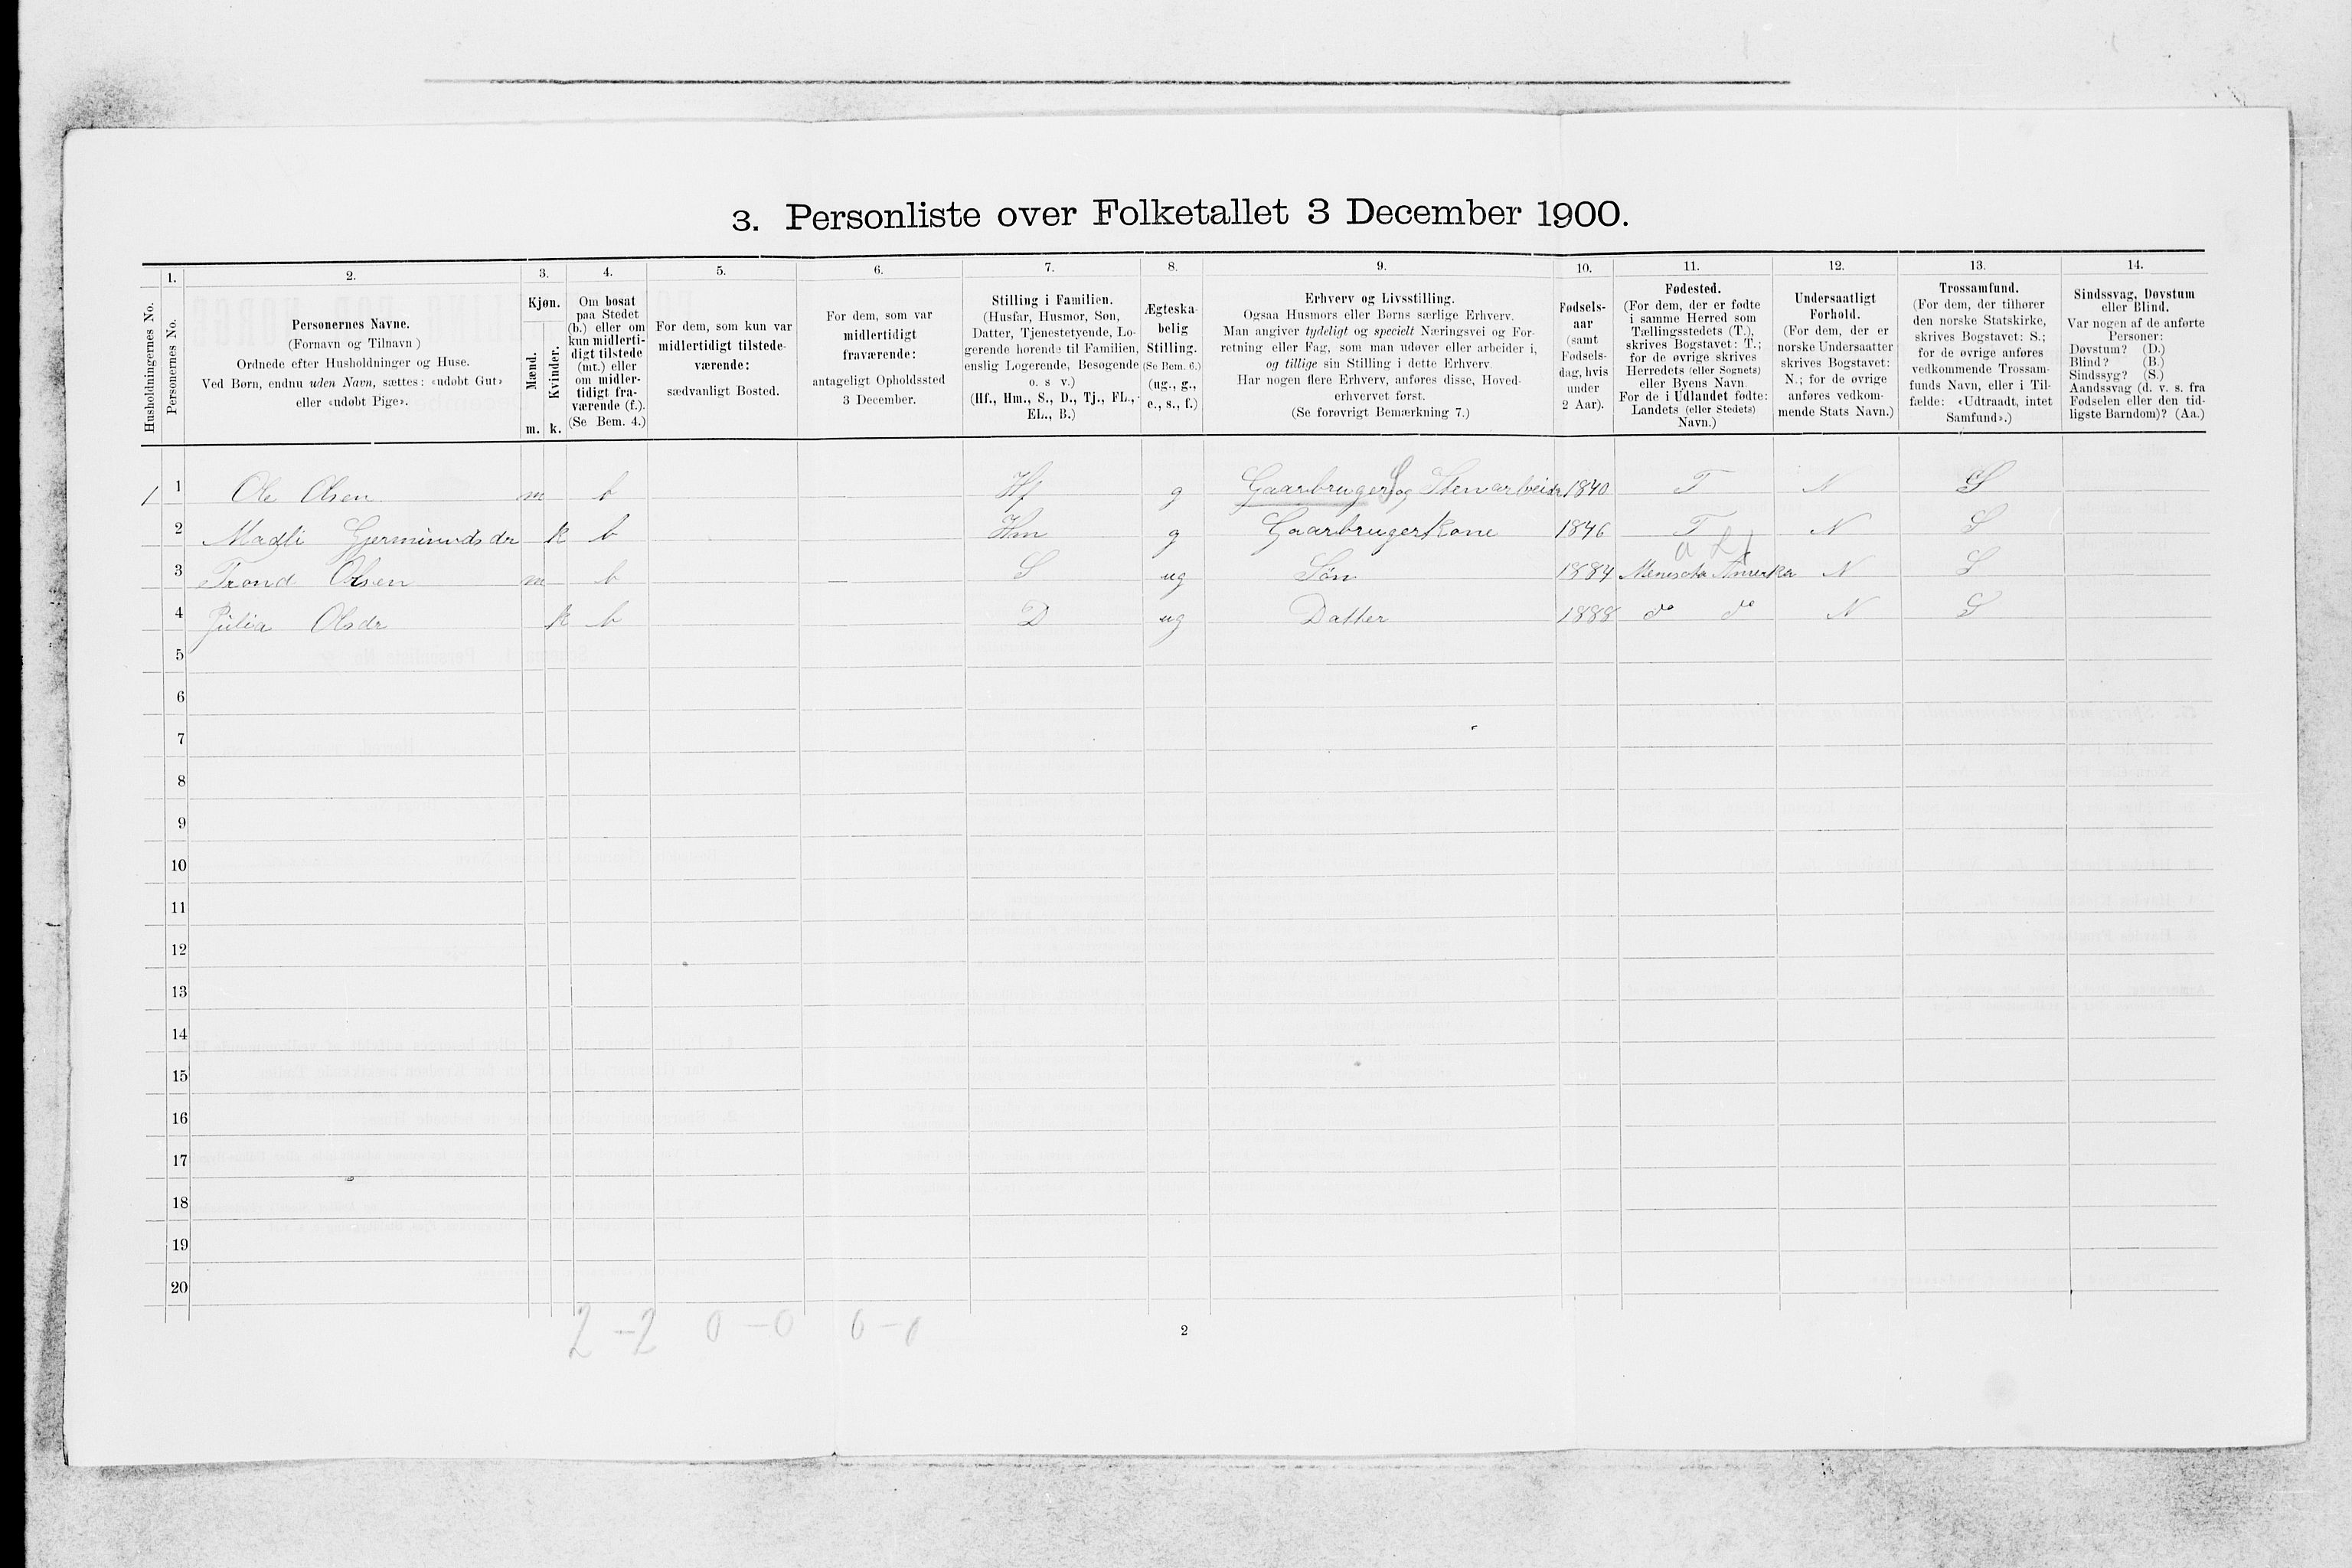 3. Personliste over Folketallet 3 December 1900.
Husholdningernes No.
1.
Personernes No.
2.
Personernes Navne.
(Fornavn og Tilnavn)
Ordnede efter Husholdninger og Huse.
Ved Børn, endnu uden Navn, sættes: «udøbt Gut»
eller «udøbt Pige».
3.
Kjøn.
Mænd.
Kvinder.
m. k.
4.
Om bosat
paa Stedet
(b.) eller om
kun midlerti-
digt tilstede
(mt.) eller
om midler-
tidigt fra-
værende (f.).
(Se Bem. 4.)
5.
For dem, som kun var
midlertidigt tilstede-
værende:
sædvanligt Bosted.
6.
For dem, som var
midlertidigt
fraværende:
antageligt Opholdssted
3 December.
7.
Stilling i Familien.
(Husfar, Husmor, Søn,
Datter, Tjenestetyende, Lo-
gerende hørende til Familien,
enslig Logerende, Besøgende
o. s v.)
(Hf., Hm., S., D., Tj., FL.,
EL., B.)
8.
Ægteska-
belig
Stilling.
(Se Bem. 6.)
(ug., g.,
e., s., f.)
9.
Erhverv og Livsstilling.
Ogsaa Husmors eller Børns særlige Erhverv.
Man angiver tydeligt og specielt Næringsvei og For-
retning eller Fag, som man udøver eller arbeider i,
og tillige sin Stilling i dette Erhverv.
Har nogen flere Erhverv, anføres disse, Hoved-
erhvervet først.
(Se forøvrigt Bemærkning 7.)
10.
Fødsels-
aar
(samt
Fødsels-
dag, hvis
under
2 Aar).
11.
Fødested.
(For dem, der er fødte
i samme Herred som
Tællingsstedets (T.),
skrives Bogstavet: T.;
for de øvrige skrives
Herredets (eller Sognets)
eller Byens Navn
For de i Udlandet fødte:
Landets (eller Stedets)
Navn.)
12.
Undersaatligt
Forhold.
(For dem, der er
norske Undersaatter
skrives Bogstavet:
N.; for de øvrige
anføres vedkom-
mende Stats Navn.)
13.
Trossamfund.
(For dem, der tilhører
den norske Statskirke,
skrives Bogstavet: S.;
for de øvrige anføres
vedkommende Trossam-
funds Navn, eller i Til-
fælde: «Udtraadt, intet
Samfund».)
14.
Sindssvag, Døvstum
eller Blind.
Var nogen af de anførte
Personer:
Døvstum? (D.)
Blind? (B.)
Sindssyg? (S.)
Aandssvag (d. v. s. fra
Fødselen eller den tid-
ligste Barndom)? (Aa.)
1 1 Ole Olsen m b Hf g Gaarbruger og Stenarbeider 1840 T N S
2 Madli Gjermundsdr k b Hm g Gaarbrugerkone 1846 T N S
3 Trond Olsen m b S ug Søn 1884 Menesota Amerka N S
4 Julia Olsdr k b D ug Datter 1888 do do N S
5
6
7
8
9
10
11
12
13
14
15
16
17
18
19
20
2-2 0-0 0-0
2